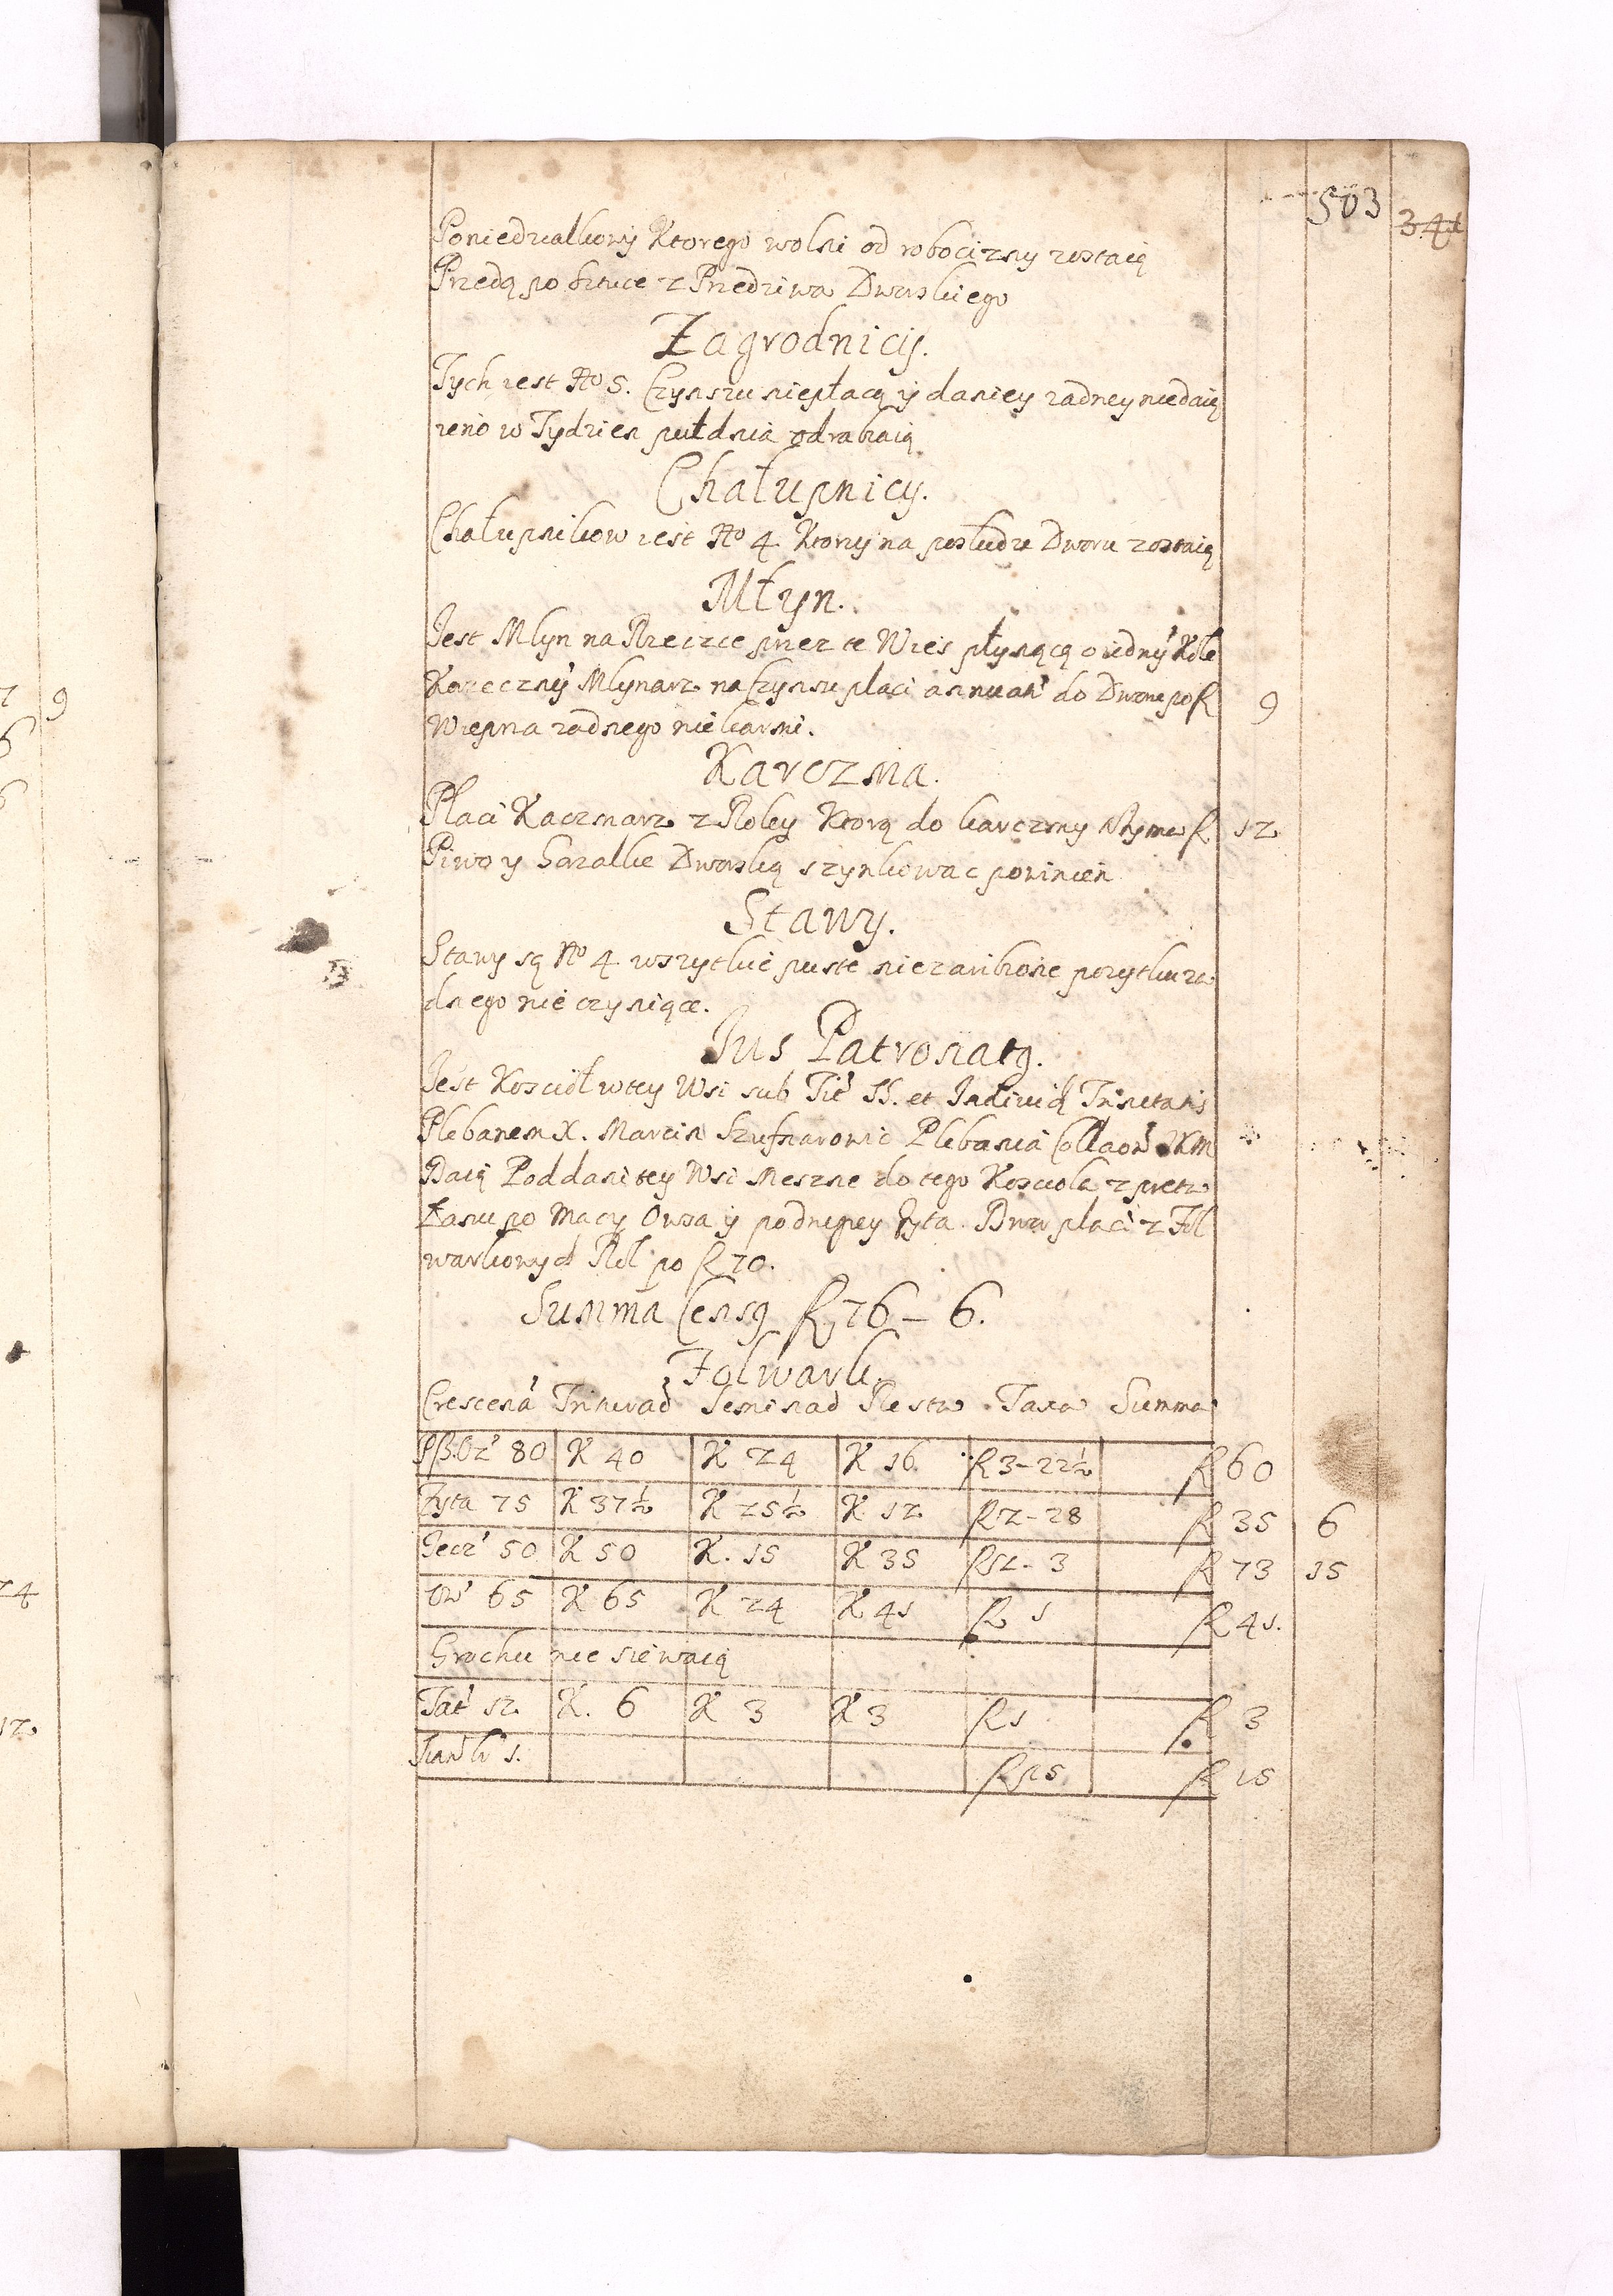 503
341
Poniedzialkowy Ktorego wolni od robocizny zostaią
Przedą po sztuce z Przedziwa Dworskiego
Zagrodnicy.
Tych iest No 5. Czynszu niepłacą y daniey zadney niedaią
ieno w Tydzien puł dnia odrabiaią
Chałupnicy.
Chałupnikow iest No 4. Ktorzy na posłudze Dworu zostaią
Młyn.
Jest Mlyn na Rzeczce przez te Wies płynącą o iedny Kole
Korzeczny Mlynarz na Czynsu placi annuati do Dworu po R 9
Wieprza zadnego nie karmi.
Karczma.
Placi Kaczmarz z Roley Ktorą do karczmy trzyma R 12
Piwo y Gorzalke Dworską szynkowac powinien
Stawy.
Stawy są No 4 wszytkie puste niezaribione pozytku za
dnego nie czyniące.
Jus Patronatg.
Jest Kosciół w tey Wsi sub Tit SS. et Individ Trinitatis
Plebanem X. Marcin Szufnarowic Plebania Collaon JKM
Daią Poddani tey Wsi Meszne do tego Kosciola z pręta
Łanu po Macy Owsa y po drugiey Zyta. Dwor placi z Fol
warkowych Rol po R 20.
Summa Censg R 76 – 6.
Folwark.
Crescena Triturad Seminad Resta Taxa Summa
Psz. Oz 80 K 40 K 24 K 16 R 3–22½ R 60
Zyta 75 K 37½ K 25½ K 12 R 2–28 R 35 6
Jecz 50 K 50 K. 15 K 35 R 2– 3 R 73 15
Ow 65 K 65 K 24 K 41 R 1 R 41.
Grochu nie siewaią
Tat 12 K. 6 K 3 K 3 R 1 R 3
Sian k 1. R 15 R 15